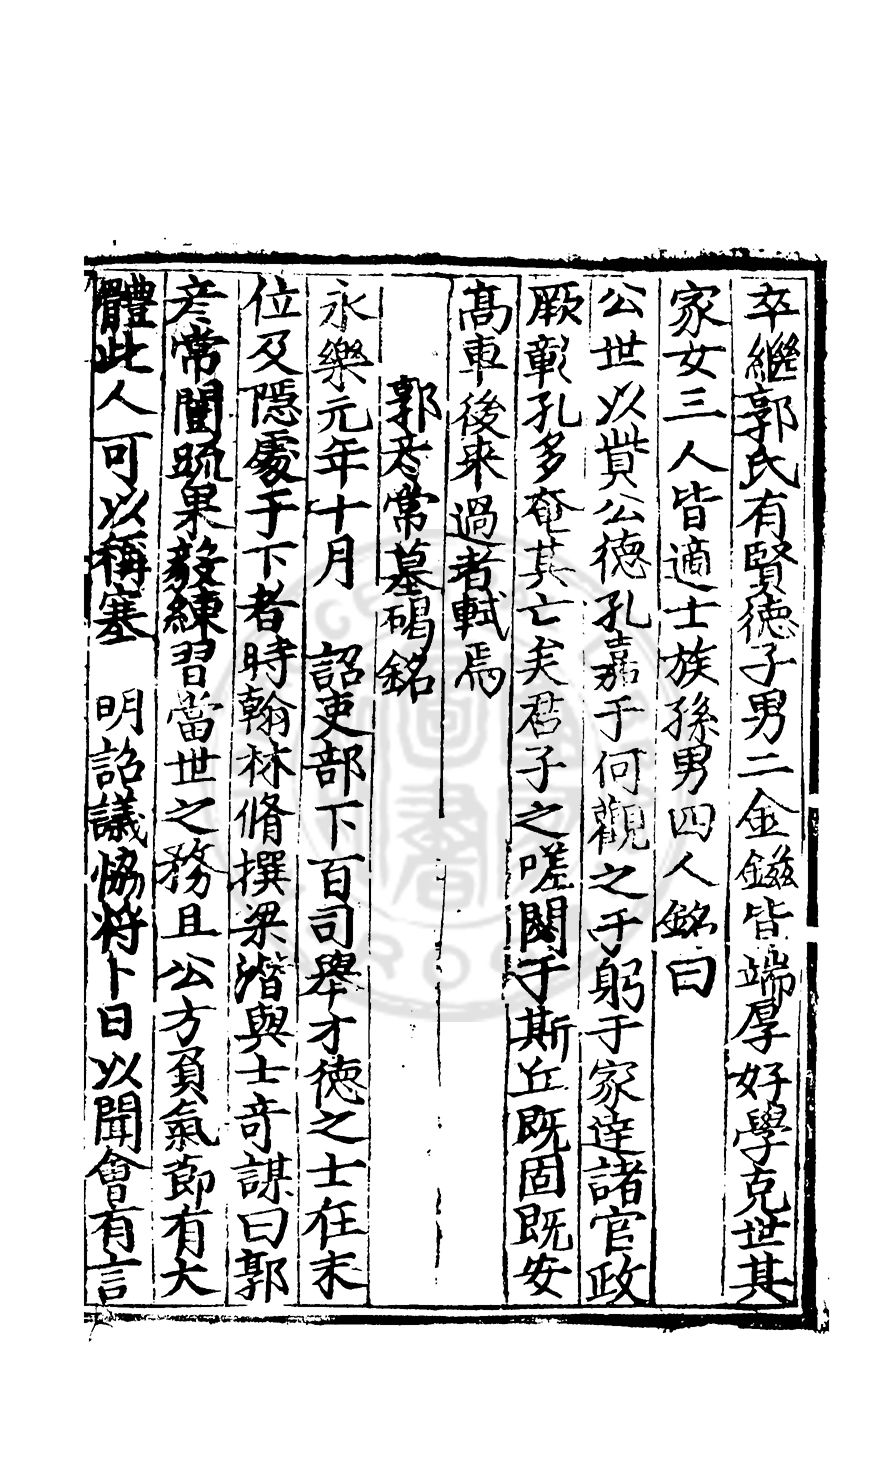 卒繼郭氏有賢徳子男二金鎡皆端厚好學克世其
家女三人皆適士族孫男四人銘曰
公世以貲公德孔嘉于何觀之于躬于家達諸官政
厥彰孔多奄其亡矣君子之嗟閟于斯丘既固既安
髙車後来過者軾焉
郭彦常墓碣銘
永樂元年十月　詔吏部下百司舉才德之士在末
位及隱處于下者時翰林脩撰梁潛與士竒謀曰郭
彦常闓疏果毅練習當世之務且公方負氣節有大
體此人可以稱塞　明詔議恊將卜日以聞會有言